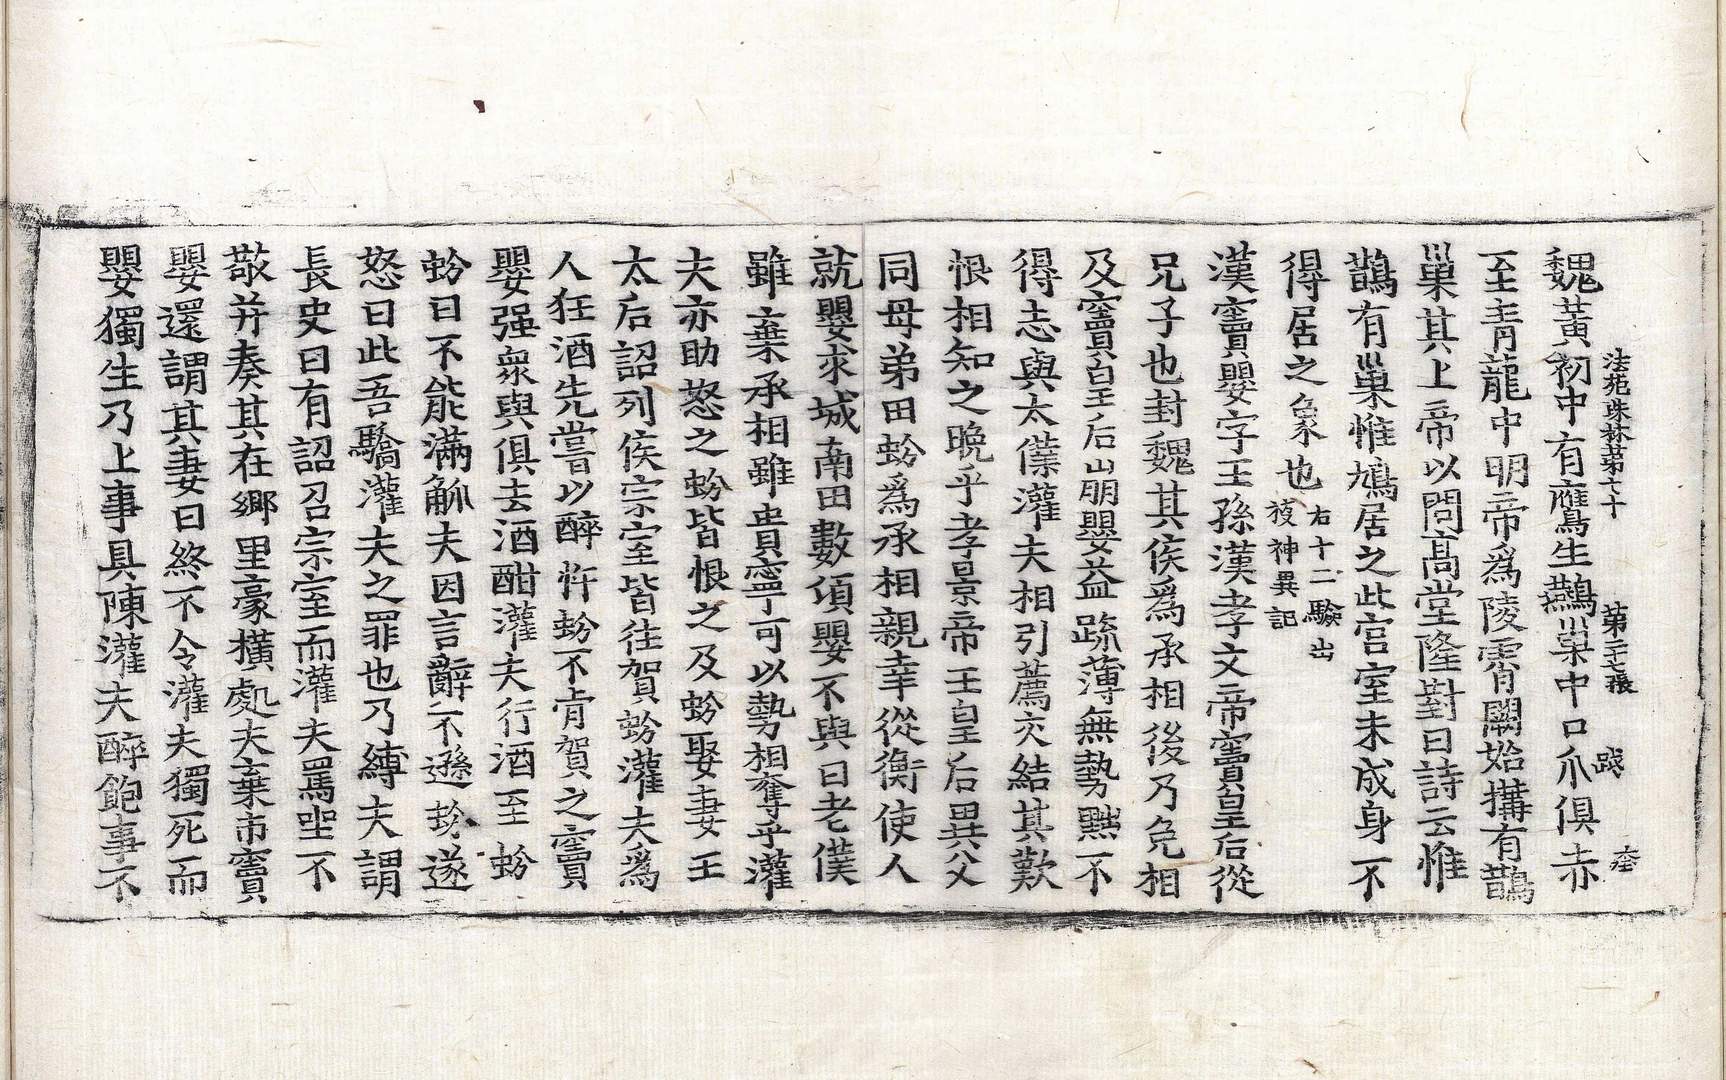 法苑珠林第六十 第二十七張 𨁝 㘴
魏黃初中有鷹生鷰巢中口爪俱赤
至青龍中明帝爲陵霄闕始搆有鵲
巢其上帝以問高堂隆對曰詩云惟
鵲有巢惟鳩居之此宮室未成身不
得居之象也右十二驗出𥘵神異記
漢竇嬰字王孫漢孝文帝竇皇后從
兄子也封魏其侯爲丞相後乃免相
及竇皇后崩嬰益疏薄無勢黜不
得志與太僕灌夫相引薦交結其歡
恨相知之晚乎孝景帝王皇后異父
同母弟田蚡爲丞相親幸從衡使人
就嬰求城南田數頃嬰不與曰老僕
雖棄丞相雖貴寧可以勢相奪乎灌
夫亦助怒之蚡皆恨之及蚡娶妻王
太后詔列侯宗室皆往賀蚡灌夫爲
人狂酒先嘗以醉忤蚡不肯賀之竇
嬰强衆與俱去酒酣灌夫行酒至蚡
蚡曰不能滿觴夫因言辭不遜蚡遂
怒曰此吾驕灌夫之罪也乃縛夫謂
長史曰有詔召宗室而灌夫罵坐不
敬并奏其在鄉里豪橫處夫棄市竇
嬰還謂其妻曰終不令灌夫獨死而
嬰獨生乃上事具陳灌夫醉飽事不